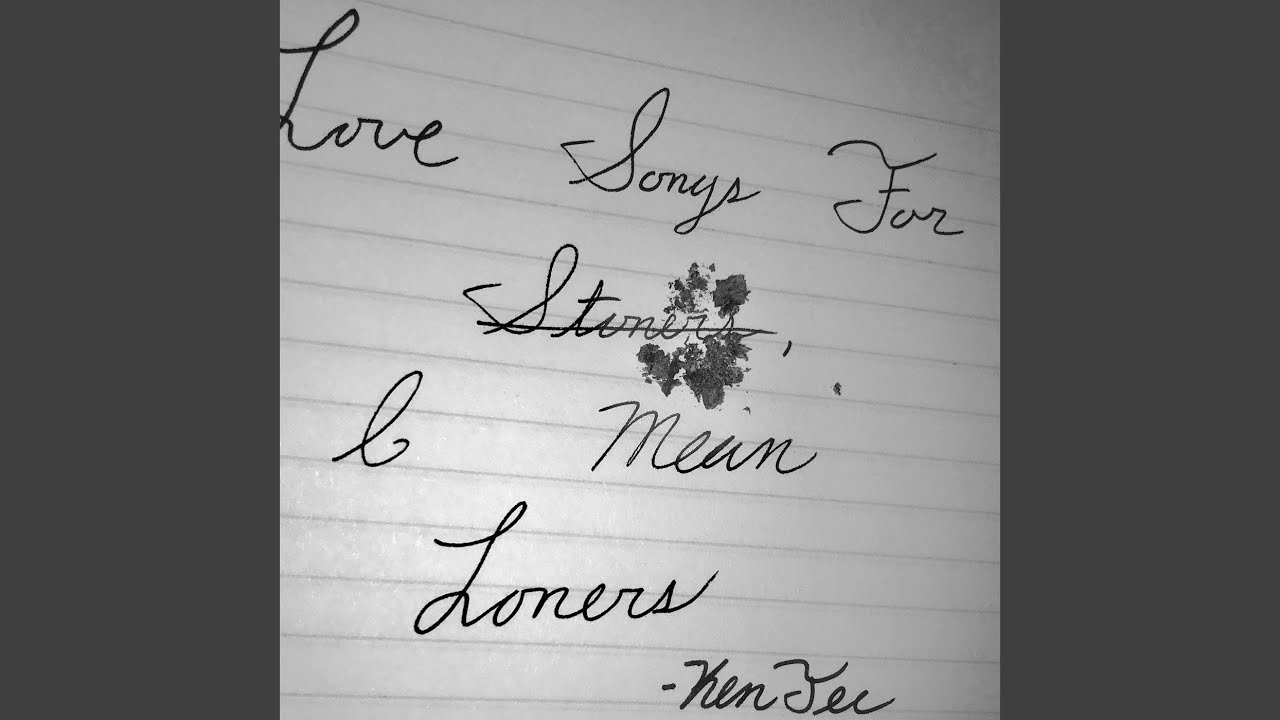 Love Songs For
Stoners,
I Mean
Loners
-Ken Tec